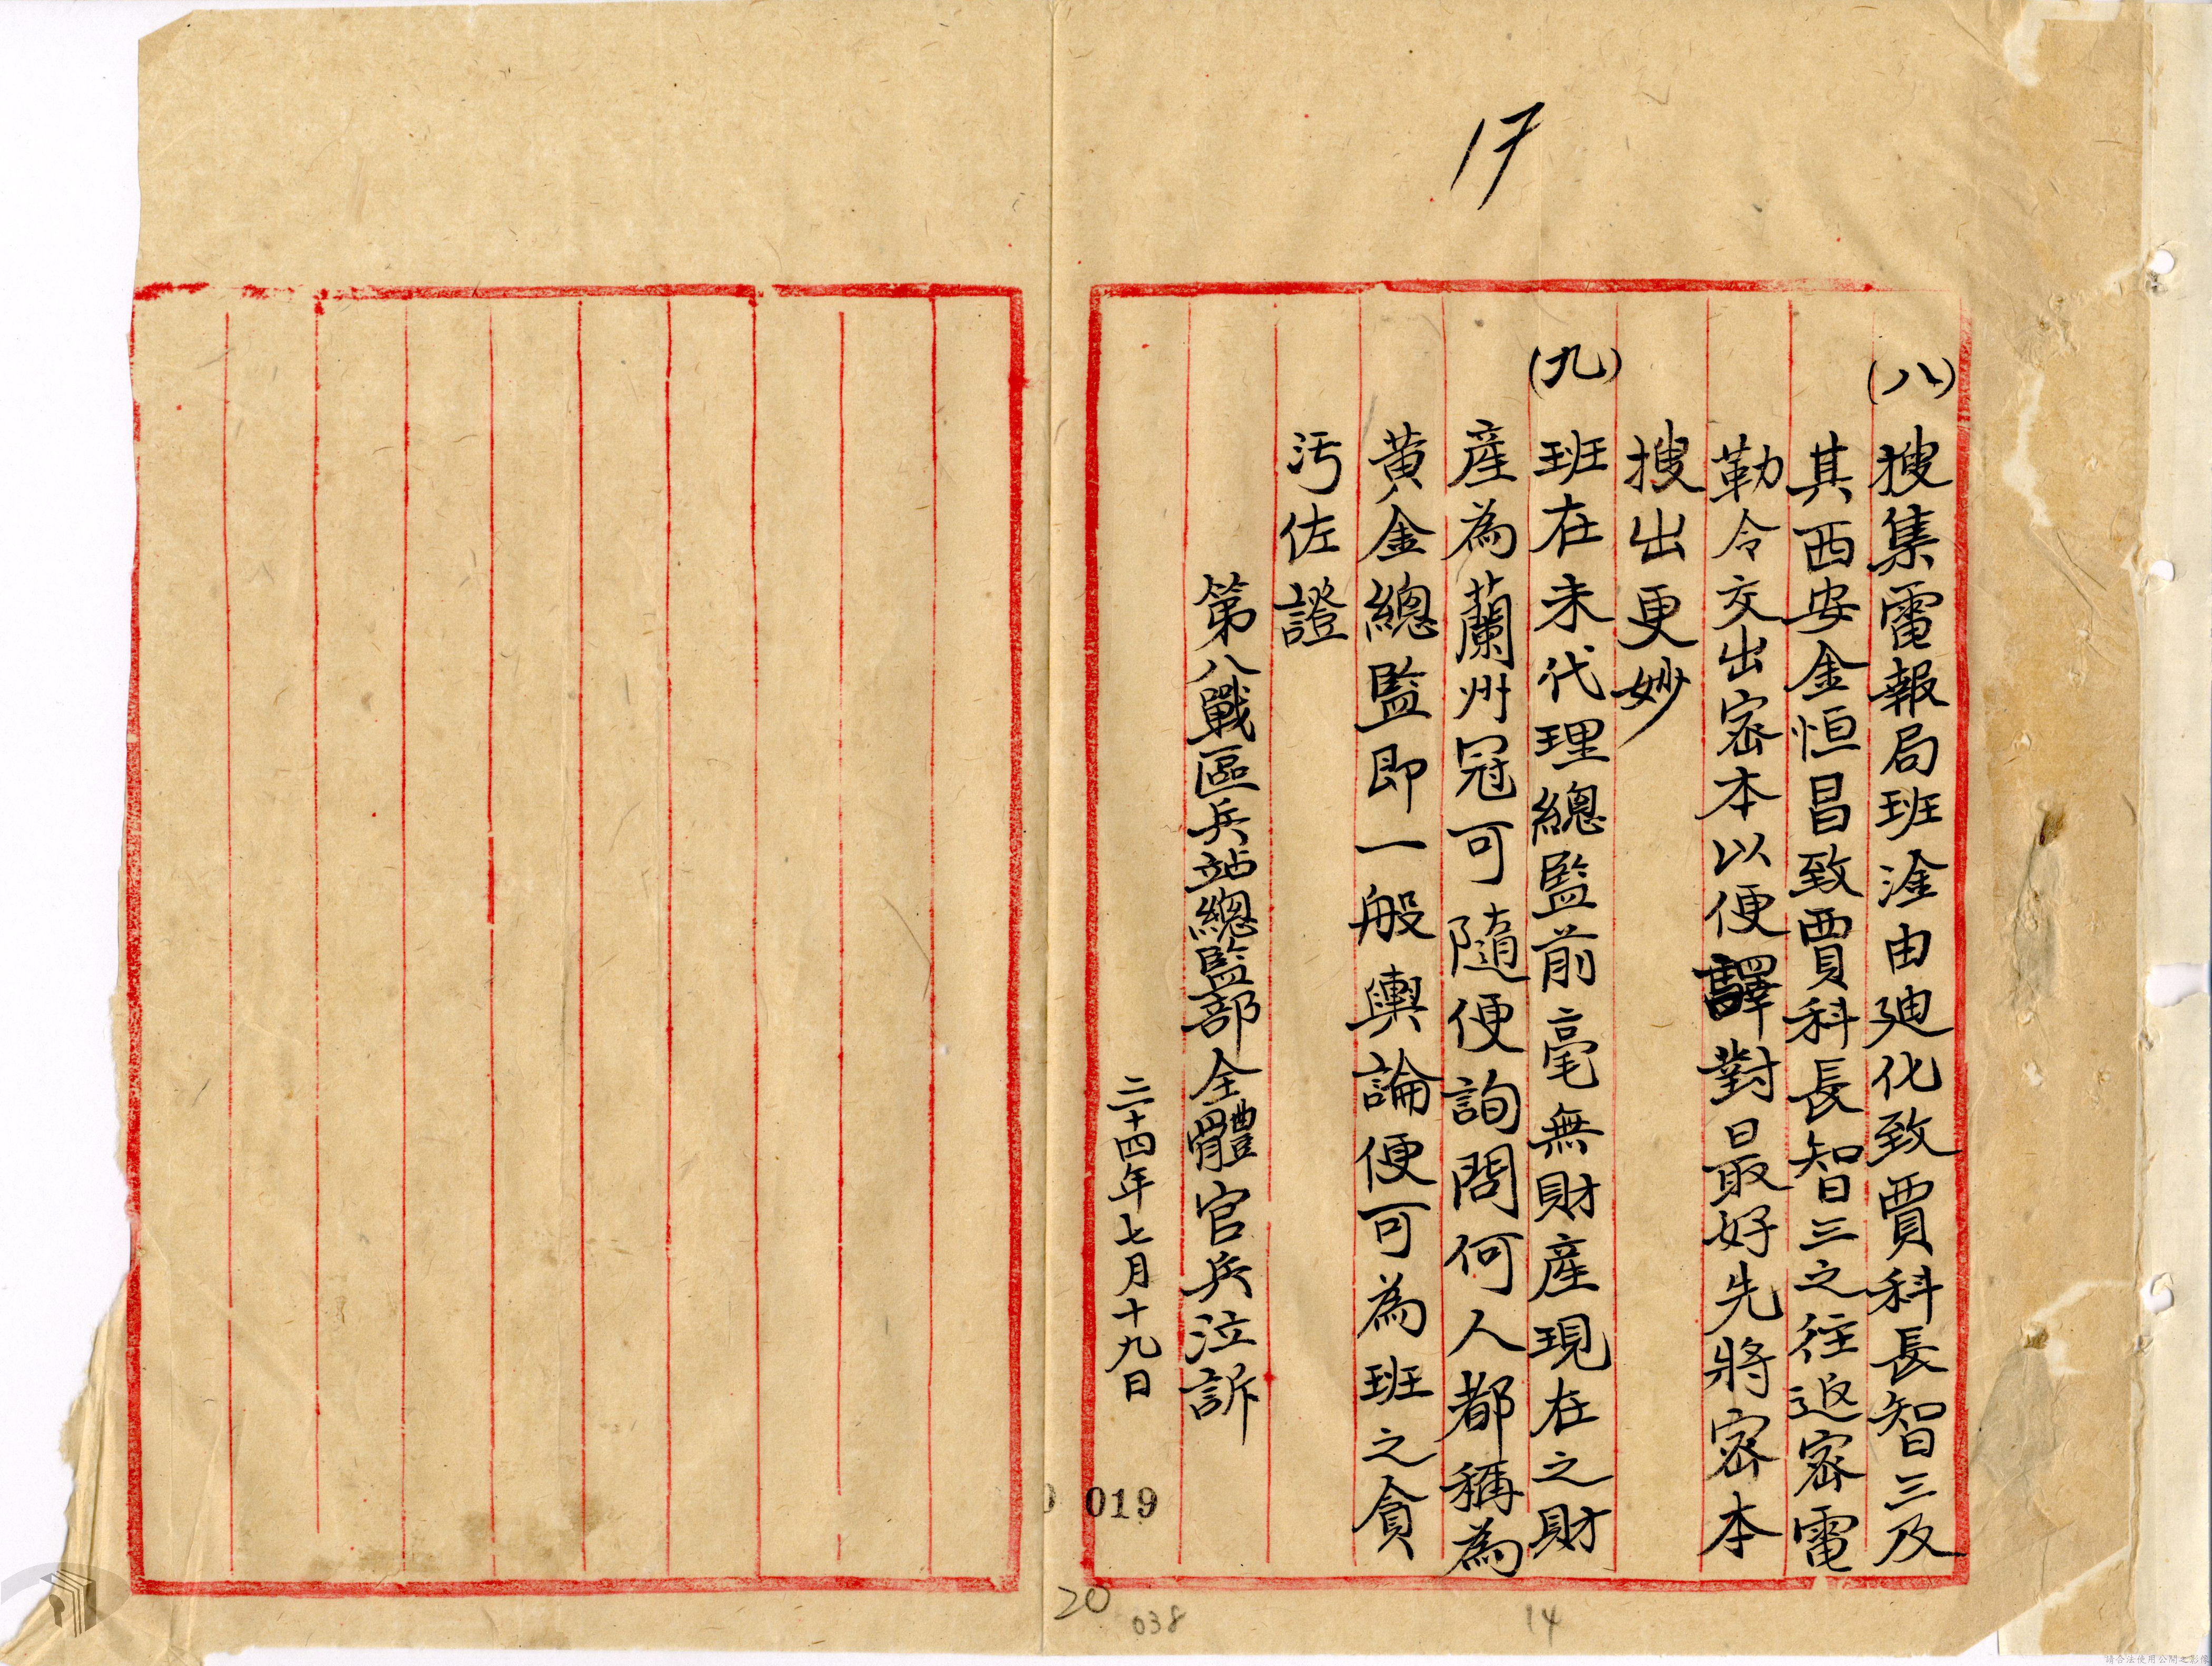 17
(八)搜集電報局班淦由廸化致賈科長智三及
其西安金恒昌致賈科長智三之往返密電
勒令交出密本以便譯對最好先將密本
搜出更妙
(九)班在未代理總監前毫無財產現在之財
產為蘭州冠可隨便詢問何人都稱為
黃金總監即一般輿論便可為班之貪
污佐證
第八戰區兵站總監部全體官兵泣訴
三十四年七月十九日
019
20
038
14
請合法使用公開之影像